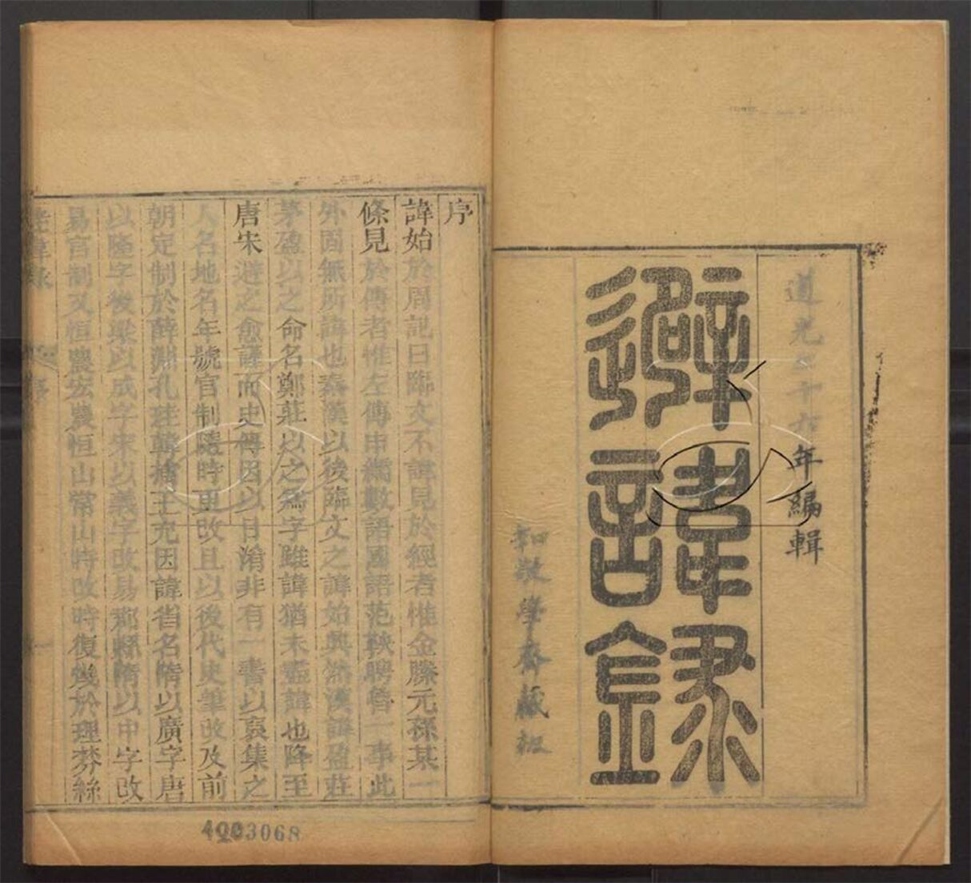 道光二十六年編輯
避諱錄
知敬學齋藏板
序
諱始於周記曰臨文不諱見於經者惟金縢元孫某一
條見於傳者惟左傳申繻數語國語范鞅聘魯一事此
外固無所諱也秦漢以後臨文之諱始興然漢諱盈莊
茅盈以之命名鄭莊以之爲字雖諱猶未盡諱也降至
唐宋避之愈謹而史傳因以日淆非有一書以裒集之
人名地名年號官制隨時更改且以後代史筆改及前
朝定制於薛淵孔珪韓擒王充因諱省名隋以廣字唐
以隆字後梁以成字宋以義字改易郡縣隋以中字改
易官制又恒農宏農恒山常山時改時復幾於理棼絲
避諱錄 序 一
4003068